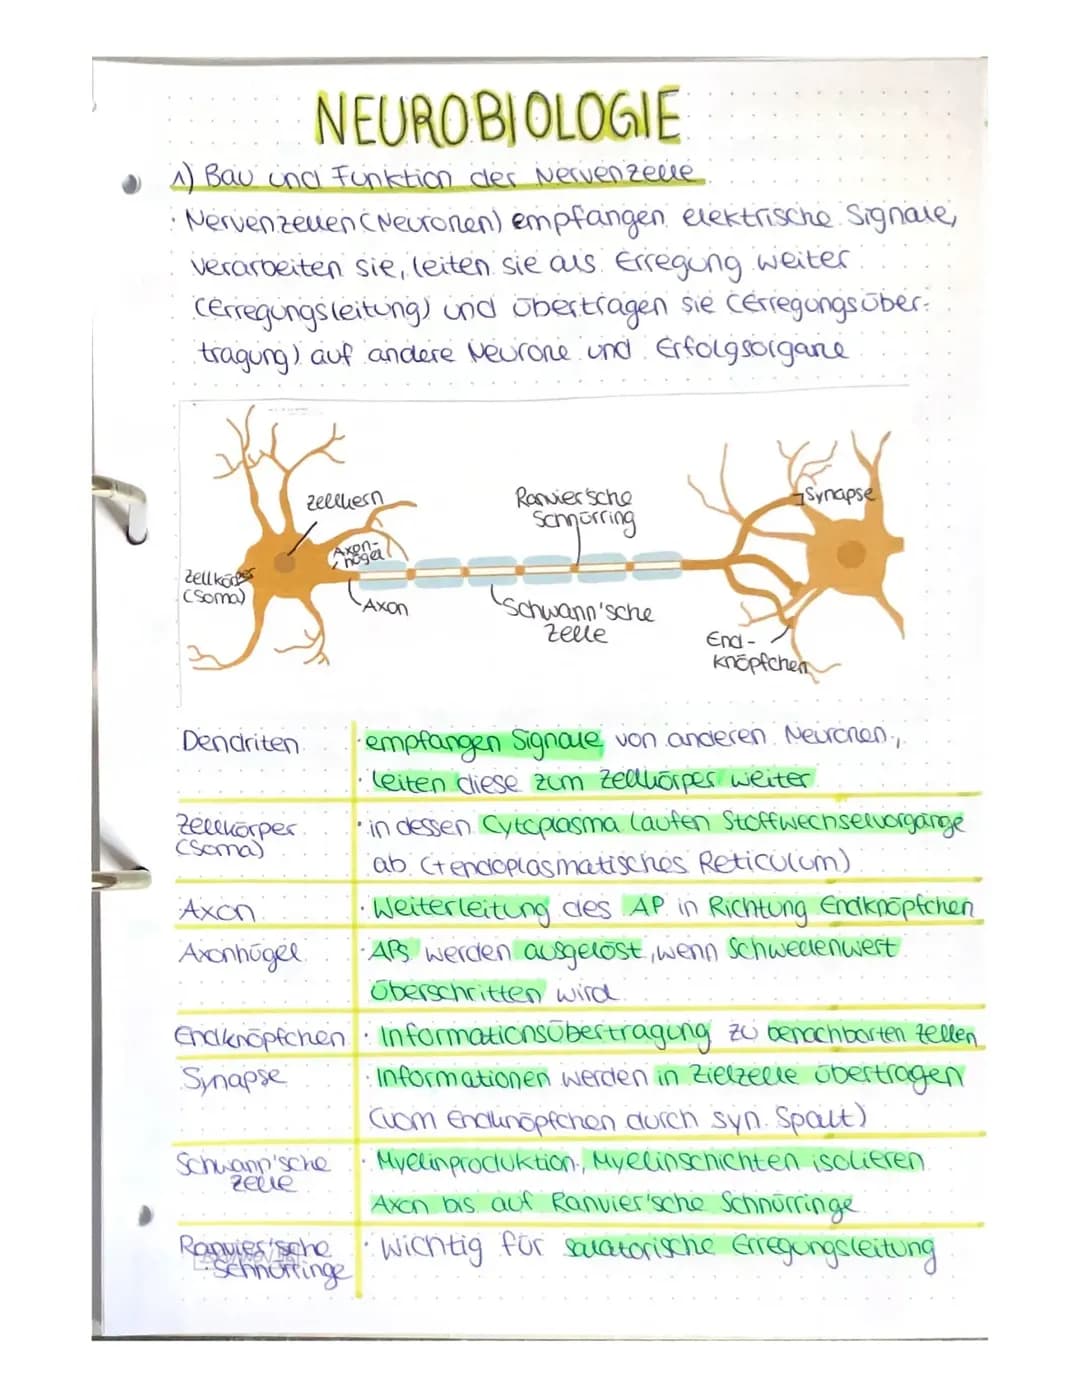 NEUROBIOLOGIE
1) Bau und Funktion der Nervenzelle
· Nervenzellen (Neuronen) empfangen elektrische Signale,
verarbeiten sie, leiten sie als Erregung weiter
(Erregungsleitung) und übertragen sie (Erregungsüber-
tragung) auf andere Neurone und Erfolgsorgane
Zellkern
Axon-
hügel
Zellkörper
(Soma)
Axon
Ranvier'sche
Schnürring
Schwann'sche
Zelle
Synapse
End-
knöpfchen
Dendriten · empfangen Signale von anderen Neuronen,
· leiten diese zum Zellkörper weiter
Zellkörper · in dessen Cytoplasma laufen Stoffwechselvorgänge
(Soma) ab (+endoplasmatisches Reticulum)
Axon · Weiterleitung des AP in Richtung Endknöpfchen
Axonhügel · APs werden ausgelöst, wenn Schwellenwert
überschritten wird
Endknöpfchen · Informationsübertragung zu benachbarten Zellen
Synapse · Informationen werden in Zielzelle übertragen
(vom Endknöpfchen durch syn. Spalt)
Schwann'sche · Myelinproduktion, Myelinschichten isolieren
Zelle Axon bis auf Ranvier'sche Schnürringe
Ranvier'sche · wichtig für saltatorische Erregungsleitung
Schnürringe